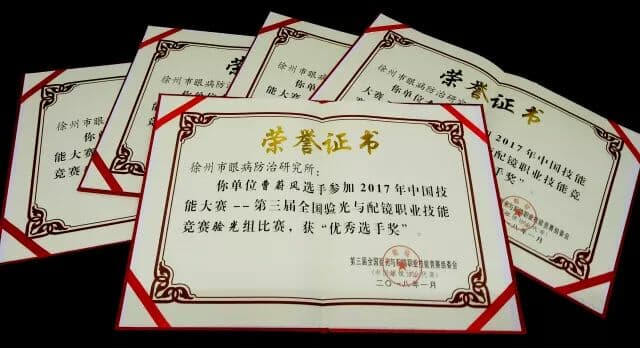 荣誉证书
徐州市眼病防治研究所：
你单位曹蔚风选手参加2017年中国技
能大赛--第三届全国验光与配镜职业技能
竞赛验光组比赛，获“优秀选手奖”
第三届全国验光与配镜职业技能竞赛组委会
二〇一八年一月
徐州市眼病防
你单
能大赛
竞赛
荣
徐州市眼病防治
荣誉
徐州市眼病防治研究所
荣誉证书
徐州市眼病防治研究所：
你单位
2017年中国技能
大赛
配镜职业技能竞
选手奖”
一八年一月